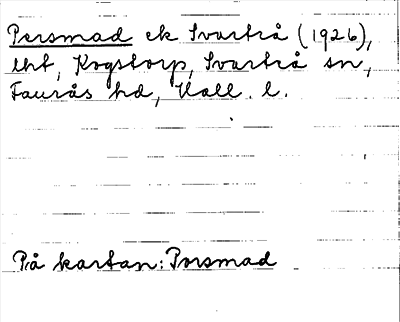 Persmad ek Svartrå (1926),
lht, Kogstorp, Svartrå sn,
Faurås hd, Hall. l.
På kartan: Porsmad